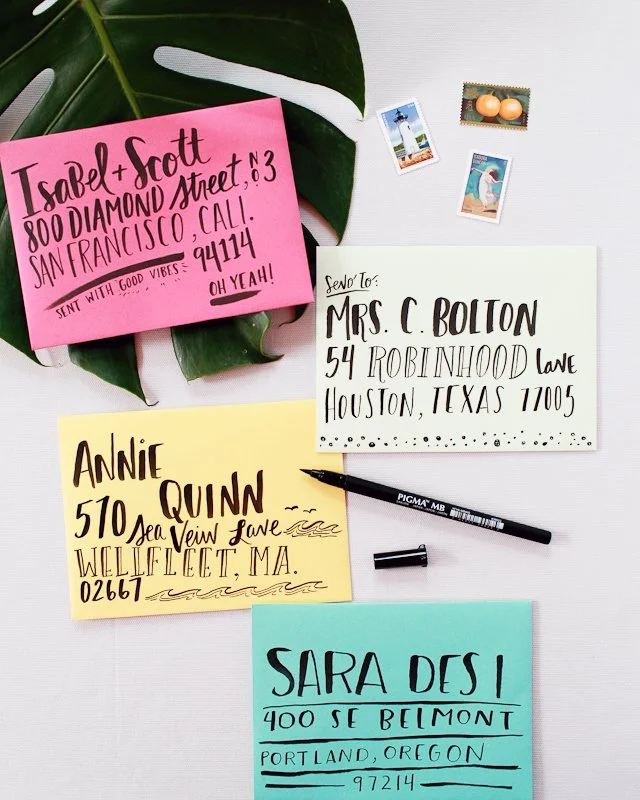 Isabel + Scott
800 DIAMOND Street, No 3
SAN FRANCISCO, CALI.
94114
SENT WITH "GOOD VIBES"
OH YEAH!
Send To:
MRS. C. BOLTON
54 ROBINHOOD Lane
HOUSTON, TEXAS 77005
ANNIE
QUINN
570 Sea Veiw Lave
WELLFLEET, MA.
02667
PIGMA™ MB
SARA DESI
400 SE BELMONT
PORTLAND, OREGON
97214